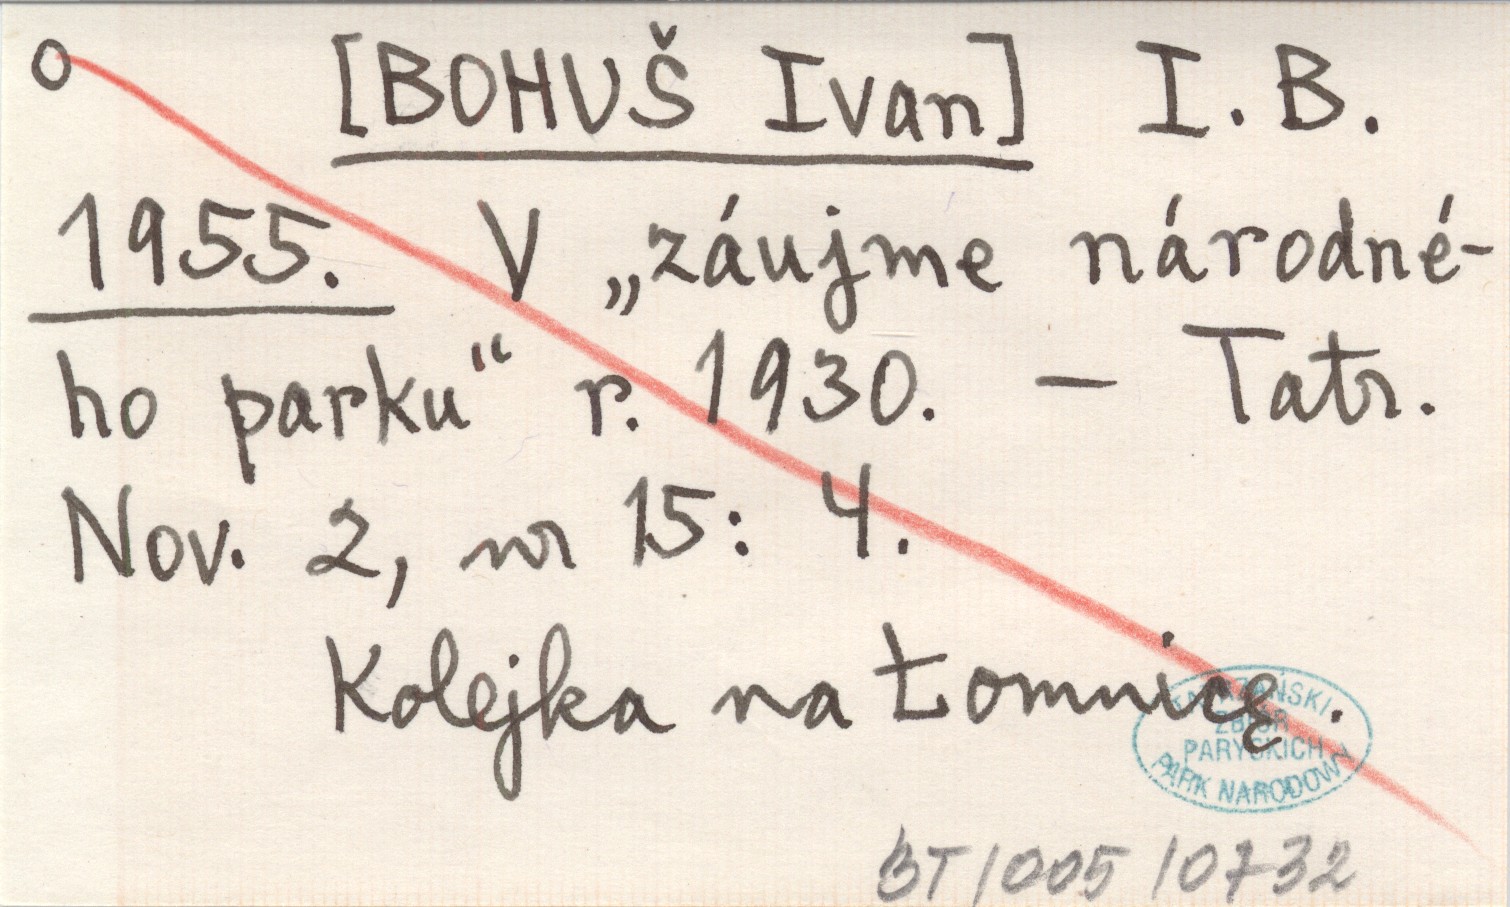 o [BOHUŠ Ivan] I. B.
1955. V „záujme národné-
ho parku“ r. 1930. — Tatr.
Nov. 2, nr 15: 4.
Kolejka na Łomnicę.
ZBIÓR
PARYSKICH
PARK NARODOWY
BT/005/0732